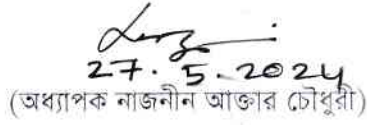 27.5.2024
(অধ্যাপক নাজনীন আক্তার চৌধুরী)